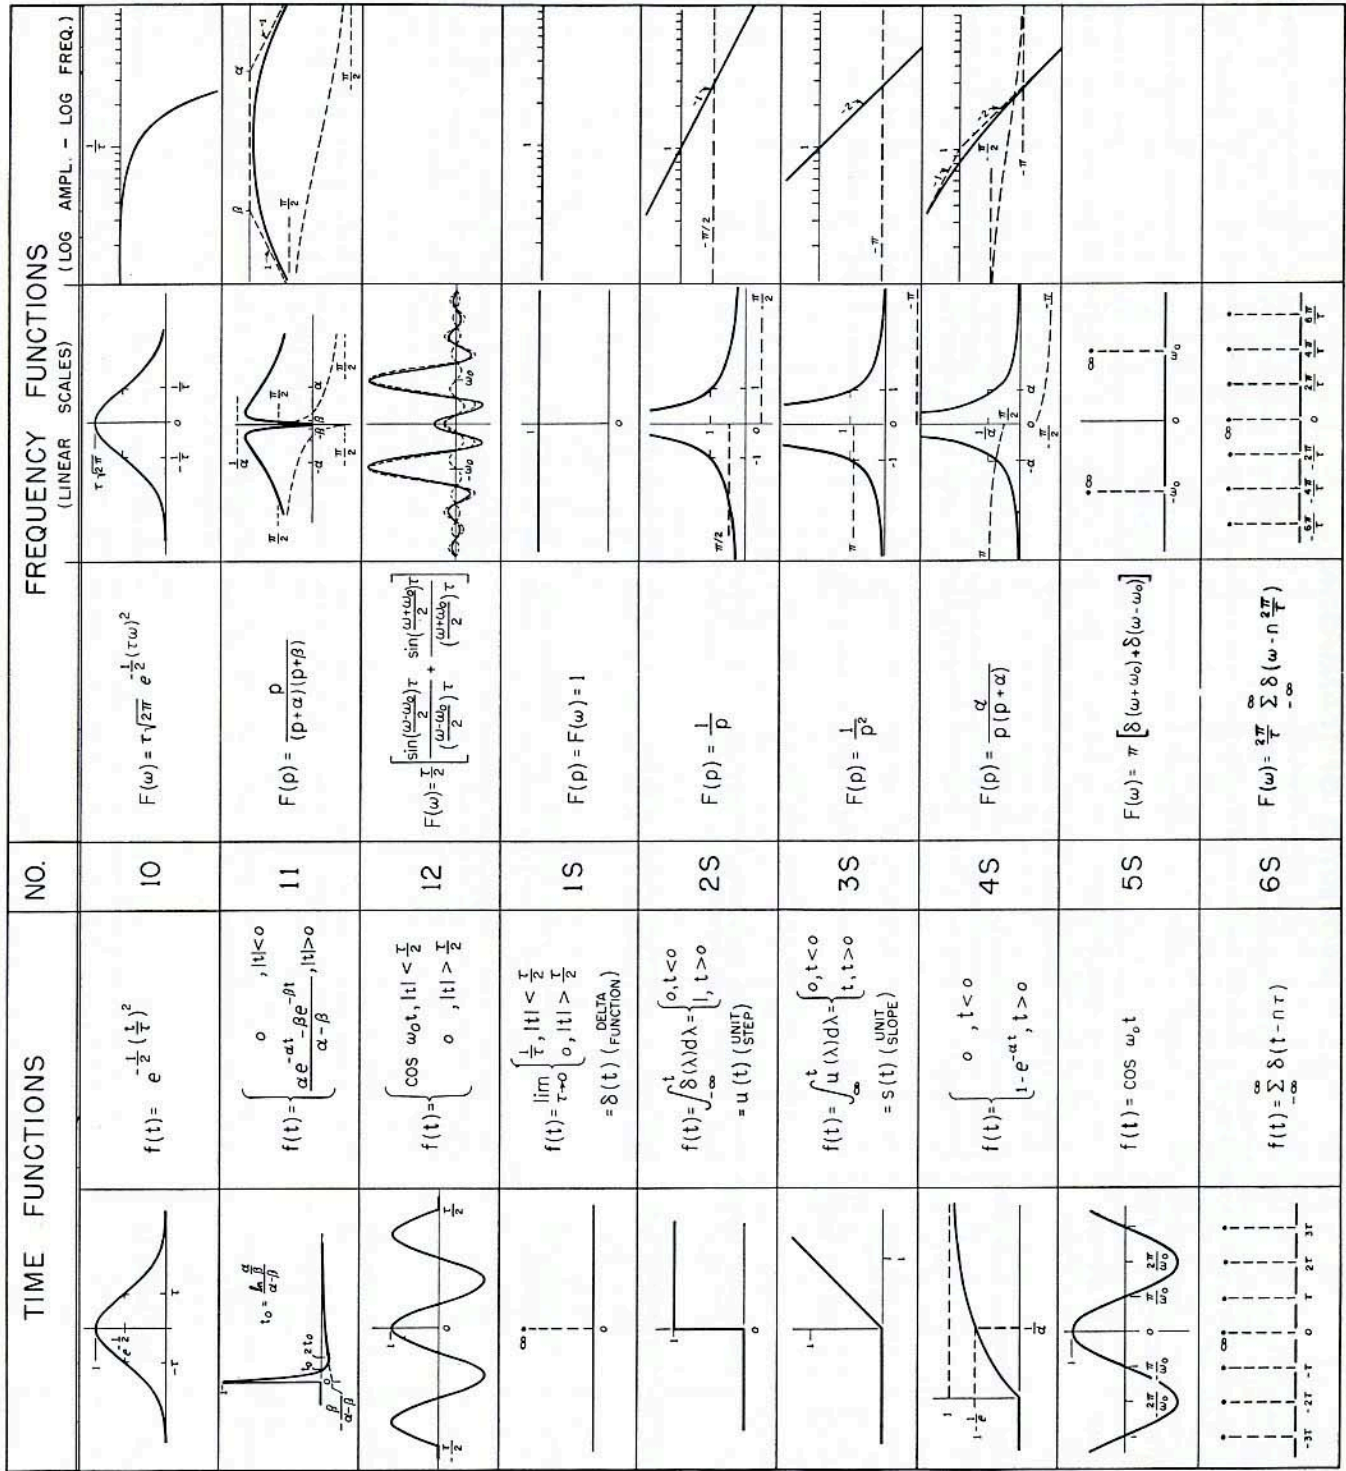 TIME FUNCTIONS
NO.
FREQUENCY FUNCTIONS
(LINEAR SCALES)
(LOG AMPL. - LOG FREQ.)
1
e^{-1/2}
-τ
τ
f(t) = e^{-1/2 (t/τ)^2}
10
F(ω) = τ√2π e^{-1/2 (τω)^2}
τ√2π
-1/τ
0
1/τ
1/τ
1
t₀ = ln α/β / α-β
t₀ 2t₀
0
-β/α-β
f(t) = { 0 , |t|<0
αe^{-αt} - βe^{-βt} / α-β , |t|>0
11
F(p) = p / (p+α)(p+β)
1/α
π/2
π/2
-α
-β
β
α
-π/2
-π/2
β
α
1
-1
π/2
-π/2
1
-τ/2
0
τ/2
f(t) = { COS ω₀t, |t| < τ/2
0 , |t| > τ/2
12
F(ω) = τ/2 [ sin(ω-ω₀/2)τ / (ω-ω₀/2)τ + sin(ω+ω₀/2)τ / (ω+ω₀/2)τ ]
-ω₀
0
ω₀
∞
0
f(t) = lim τ→0 { 1/τ, |t| < τ/2
0, |t| > τ/2
= δ(t) (DELTA FUNCTION)
1S
F(p) = F(ω) = 1
1
0
1
1
0
f(t) = ∫_{-∞}^{t} δ(λ)dλ = { 0, t<0
1, t>0
= u(t) (UNIT STEP)
2S
F(p) = 1/p
π/2
-1
1
0
1
-π/2
1
-1
-π/2
1
1
f(t) = ∫_{-∞}^{t} u(λ)dλ = { 0, t<0
t, t>0
= s(t) (UNIT SLOPE)
3S
F(p) = 1/p²
π
-1
1
0
1
-π
1
-2
-π
1
1-1/e
1/α
f(t) = { 0 , t<0
1-e^{-αt}, t>0
4S
F(p) = α / p(p+α)
π
-α
1/α
π/2
0
-π/2
α
-π
-1
1
-2
-π/2
-π
1
-2π/ω₀
-π/ω₀
0
π/ω₀
2π/ω₀
f(t) = COS ω₀t
5S
F(ω) = π [δ(ω+ω₀)+δ(ω-ω₀)]
∞
-ω₀
0
∞
ω₀
∞
-3τ
-2τ
-τ
0
τ
2τ
3τ
f(t) = Σ_{-∞}^{∞} δ(t-nτ)
6S
F(ω) = 2π/τ Σ_{-∞}^{∞} δ(ω-n 2π/τ)
∞
-6π/τ
-4π/τ
-2π/τ
0
2π/τ
4π/τ
6π/τ